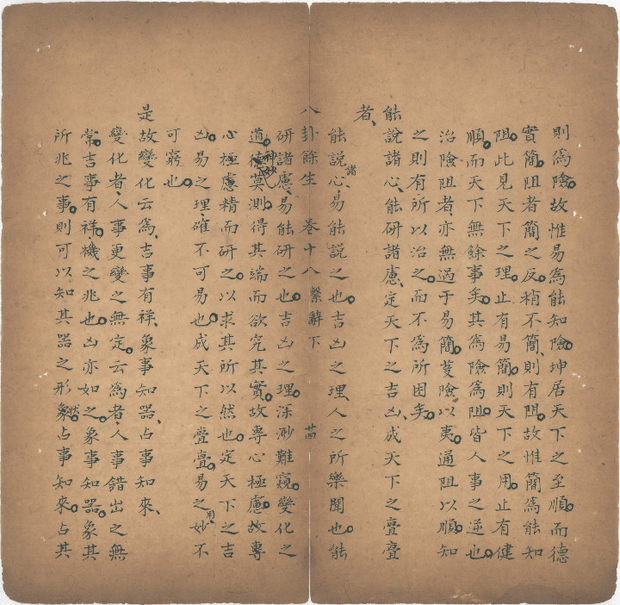 則爲險。故惟易爲能知險。坤居天下之至順。而德
實簡。阻者簡之反。稍不簡、則有阻。故惟簡爲能知
阻。此見天下之理。止有易簡。則天下之用。止有健
順。而天下無餘事矣。其爲險爲阻。皆人事之適也。
治險阻者、亦無過于易簡。蔓險以夷。通阻以順。知
之則有所以治之。而不爲所困矣。
能說諸心、能研諸慮、定天下之吉凶、成天下之亹亹
者、
能說諸心、易能說之也。吉凶之理。人之所樂聞也。能
八卦餘生 卷十八 繫辭下 苗
研諸慮、易能研之也。吉凶之理。深渺難窺。變化之
道。神妙莫測。得其端而欲究其實。故專心極慮。故專
心極慮精而研之。以求其所以然也。定天下之吉
凶。易之理。確不可易也。成天下之亹亹。易之妙用不
可窮也。
是故變化云爲、吉事有祥、象事知器、占事知來、
變化者、人事更變之無定。云爲者、人事錯出之無
常。吉事有祥。機之兆也。凶亦如之。象事知器。象其
所兆之事。則可以知其器之形然。占事知來。占其